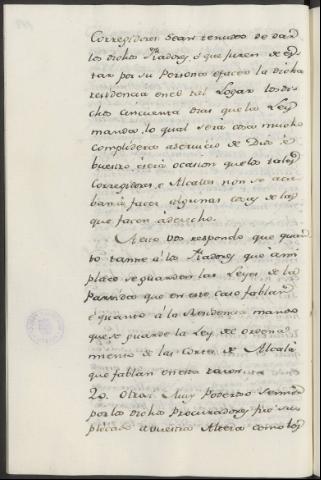 Corregidores Sean tenudos de dar
los dichos fiadores, é que juren de es
tar por su Persona é facer la dicha
residencia en el tal Logar los di
chos cincuenta dias que la Ley
manda, lo qual será cosa mucho
complidera á servicio de Dios é
buestro, é será ocasion que los tales
Corregidores, e Alcaldes non se atre
ban á facer algunas cosas de las
que facen á derecho.
A esto vos respondo que quan
to tanne á los fiadores que á mi
place se guarden las Leyes de la
Partidas que en este caso fablan
é quanto á la Residencia mando
que se guarde la Ley de ordena
miento de las Cortes de Alcalá
que fablan en esta razon
20. Otrosi Muy Poderoso Sennor
por los dichos Procuradores fué su
plicado a vuestra Alteza como los